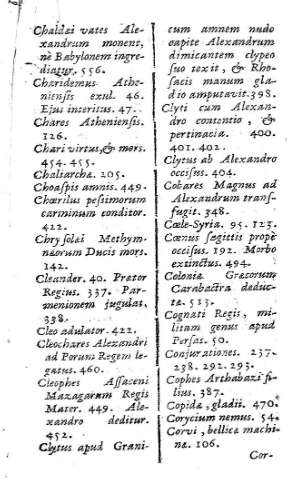 Chaldæi vates Ale-
xandrum monent,
nè Babylonem ingre-
diatur. 556.
Charidemus Athe-
niensis exul. 46.
Ejus interitus. 47.
Chares Atheniensis.
126.
Chari virtus, & mors.
454. 455.
Chaliarchæ. 205.
Choaspis amnis. 449.
Chœrilus pessimorum
carminum conditor.
422.
Chrysolei Methym-
næorum Ducis mors.
142.
Cleander. 40. Prætor
Regius. 337. Par-
menionem jugulat.
338.
Cleo adulator. 422.
Cleochares Alexandri
ad Porum Regem le-
gatus. 460.
Cleophes Assaceni
Mazagarum Regis
Mater. 449. Ale-
xandro deditur.
452.
Clytus apud Grani-
cum amnem nudo
capite Alexandrum
dimicantem clypeo
suo texit, & Rho-
sacis manum gla-
dio amputavit. 398.
Clyti cum Alexan-
dro contentio, &
pertinacia. 400.
401. 402.
Clytus ab Alexandro
occisus. 404.
Cobares Magnus ad
Alexandrum trans-
fugit. 348.
Cœle-Syria. 95. 123.
Cœnus sagittis propè
occisus. 192. Morbo
extinctus. 494.
Colonia Græcorum
Carabactra deduc-
ta. 513.
Cognati Regis, mi-
litum genus apud
Persas. 50.
Conjurationes. 237.
238. 292. 293.
Cophes Arthabazi fi-
lius. 387.
Copidæ, gladii. 470.
Corycium nemus. 54.
Corvi, bellicæ machi-
næ. 106.
Cor-